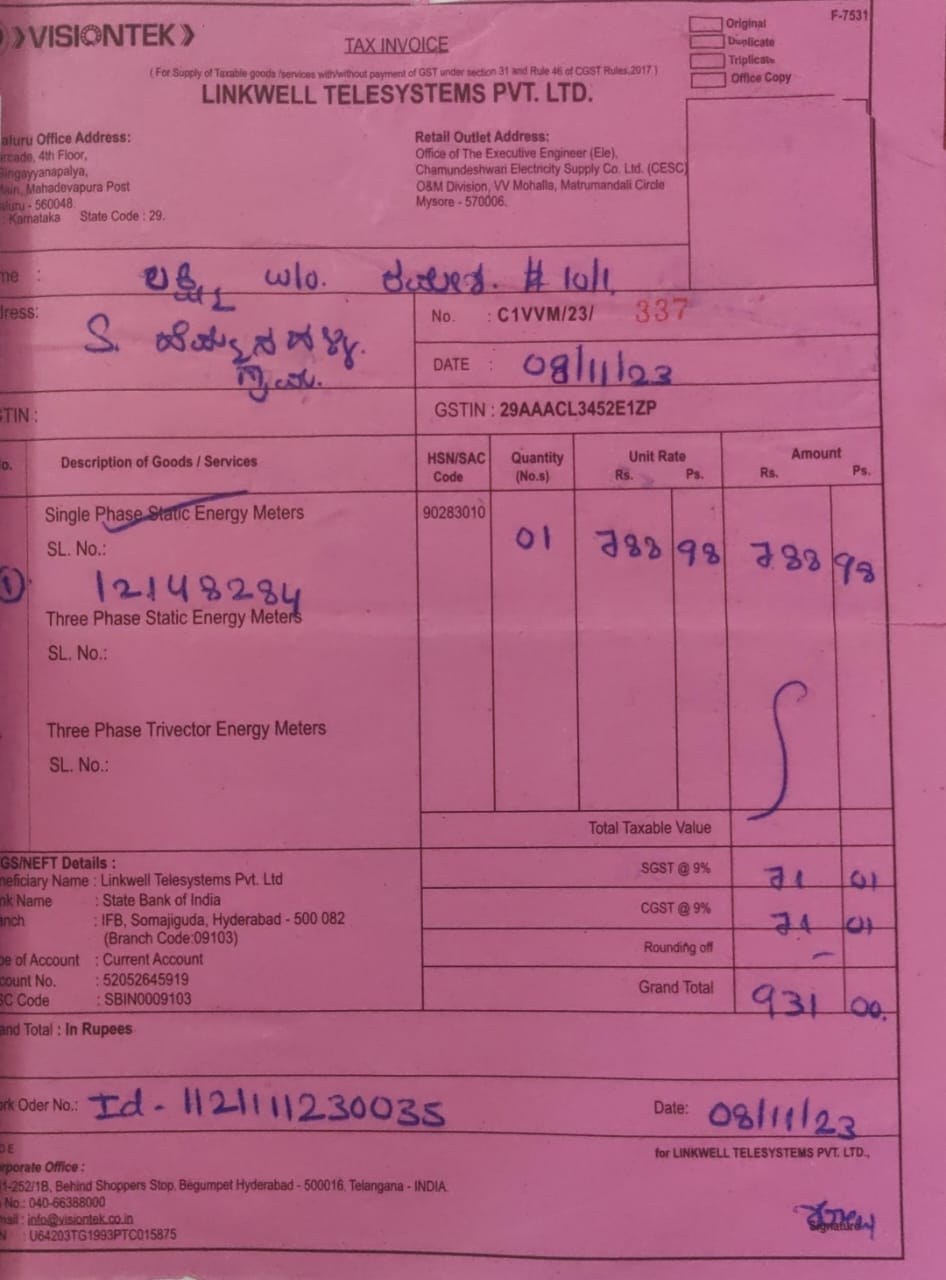 VISIONTEK
F-7531
TAX INVOICE
Original
Duplicate
Triplicate
Office Copy
( For Supply of Taxable goods /services with/without payment of GST under section 31 and Rule 46 of CGST Rules,2017 )
LINKWELL TELESYSTEMS PVT. LTD.
aluru Office Address:
rcade, 4th Floor,
ingayyanapalya,
Main, Mahadevapura Post
aluru - 560048.
: Karnataka State Code : 29.
Retail Outlet Address:
Office of The Executive Engineer (Ele),
Chamundeshwari Electricity Supply Co. Ltd. (CESC)
O&M Division, VV Mohalla, Matrumandali Circle
Mysore - 570006.
me : ಲಕ್ಷ್ಮಿ w/o. # 10/1
dress: S.
No. : C1VVM/23/ 337
DATE : 08/11/23
STIN :
GSTIN : 29AAACL3452E1ZP
o. Description of Goods / Services HSN/SAC Code Quantity (No.s) Unit Rate Rs. Ps. Amount Rs. Ps.
Single Phase Static Energy Meters 90283010
SL. No.: 01 788 98 788 98
1 12148284
Three Phase Static Energy Meters
SL. No.:
Three Phase Trivector Energy Meters
SL. No.:
Total Taxable Value
GS/NEFT Details :
neficiary Name : Linkwell Telesystems Pvt. Ltd
nk Name : State Bank of India
nch : IFB, Somajiguda, Hyderabad - 500 082
(Branch Code:09103)
pe of Account : Current Account
count No. : 52052645919
SC Code : SBIN0009103
SGST @ 9% 71 01
CGST @ 9% 71 01
Rounding off -
Grand Total 931 00.
and Total : In Rupees
ork Oder No.: Id - 112111230035
Date: 08/11/23
for LINKWELL TELESYSTEMS PVT. LTD.,
OE
rporate Office :
1-252/1B, Behind Shoppers Stop, Begumpet Hyderabad - 500016, Telangana - INDIA.
No.: 040-66388000
mail : info@visiontek.co.in
N : U64203TG1993PTC015875
Signature